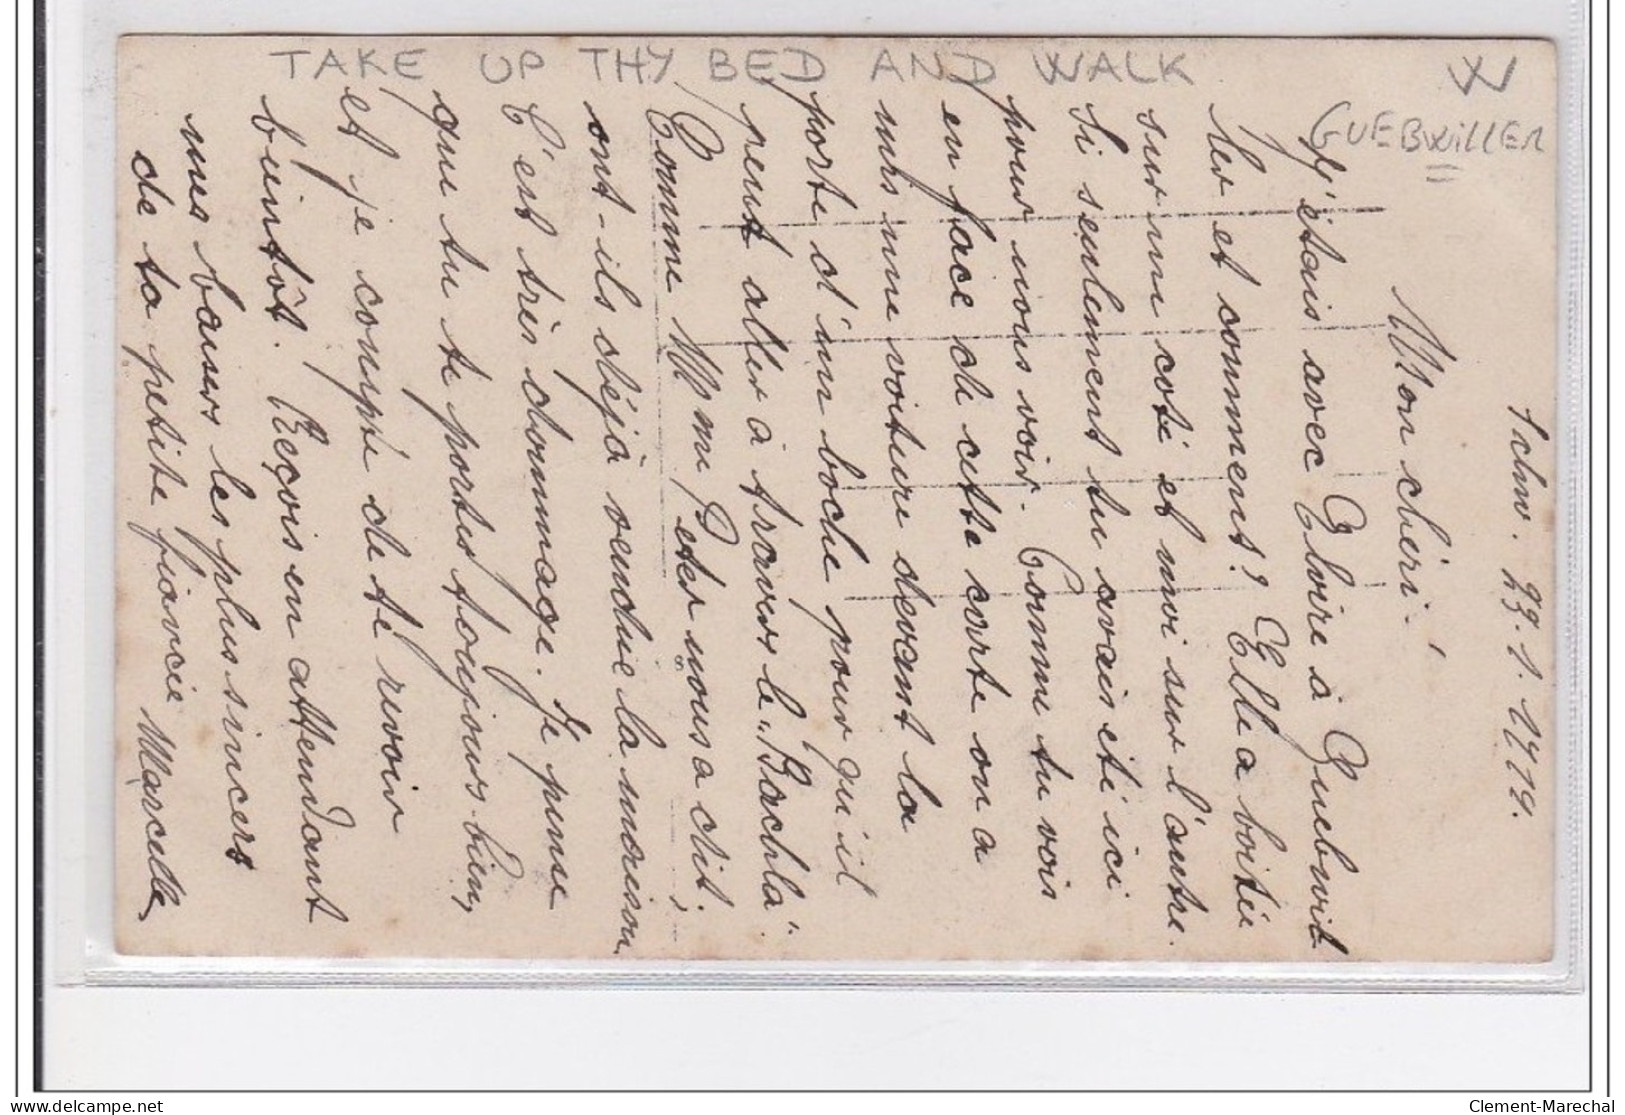 TAKE UP THY BED AND WALK
W
GUEBWILLER
Schw. 23.1.1919.
Mon chéri!
J'étais avec Gloire à Guebwil
ler et comment? Elle a boitée
sur un coté et moi sur l'autre.
Si seulement tu avais été ici
pour nous voir. Comme tu vois
en face de cette carte on a
mis une voiture devant la
porte d'un boche pour qu'il
peut aller à travers le "Bachla".
Comme Mme Peter nous a dit,
ont-ils déjà vendue la maison,
C'est très dommage. Je pense
que tu te portes toujours bien,
et je compte de te revoir
bientôt. Reçois en attendant
mes baisers les plus sincers
de ta petite fiancée Marcelle
Clement-Marechal
www.delcampe.net